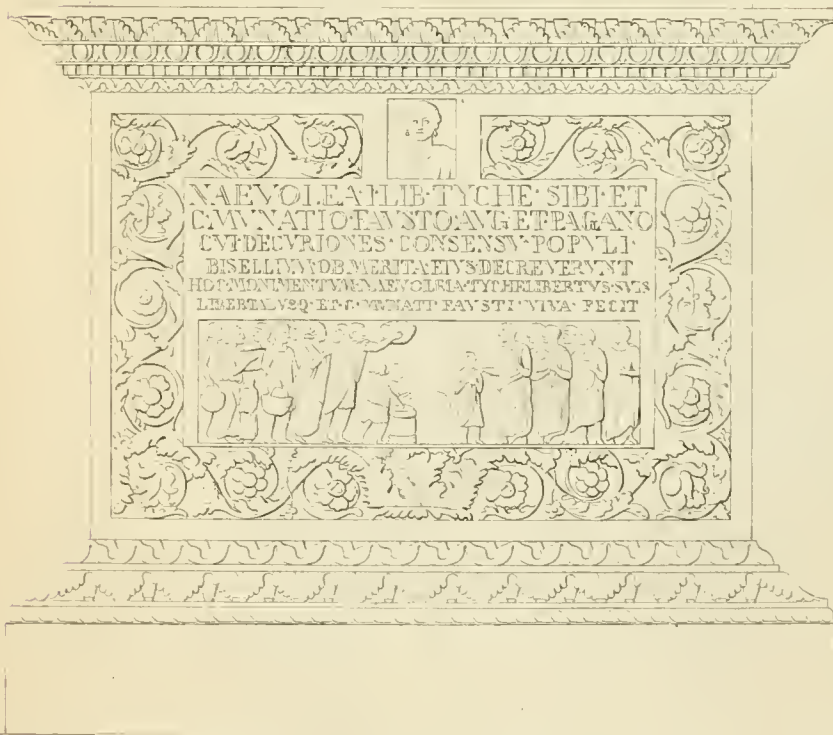 NAEVOLEA·I·LIB·TYCHE·SIBI·ET
C·MVNATIO·FAVSTO·AVG·ET·PAGANO
CVI·DECVRIONES·CONSENSV·POPVLI·
BISELLIVM·OB·MERITA·EIVS·DECREVERVNT
HOC·MONIMENTVM·NAEVOLEIA·TYCHE·LIBERTVS·SVIS
LIBERTABVSQ·ET·C·MVNATI·FAVSTI·VIVA·FECIT